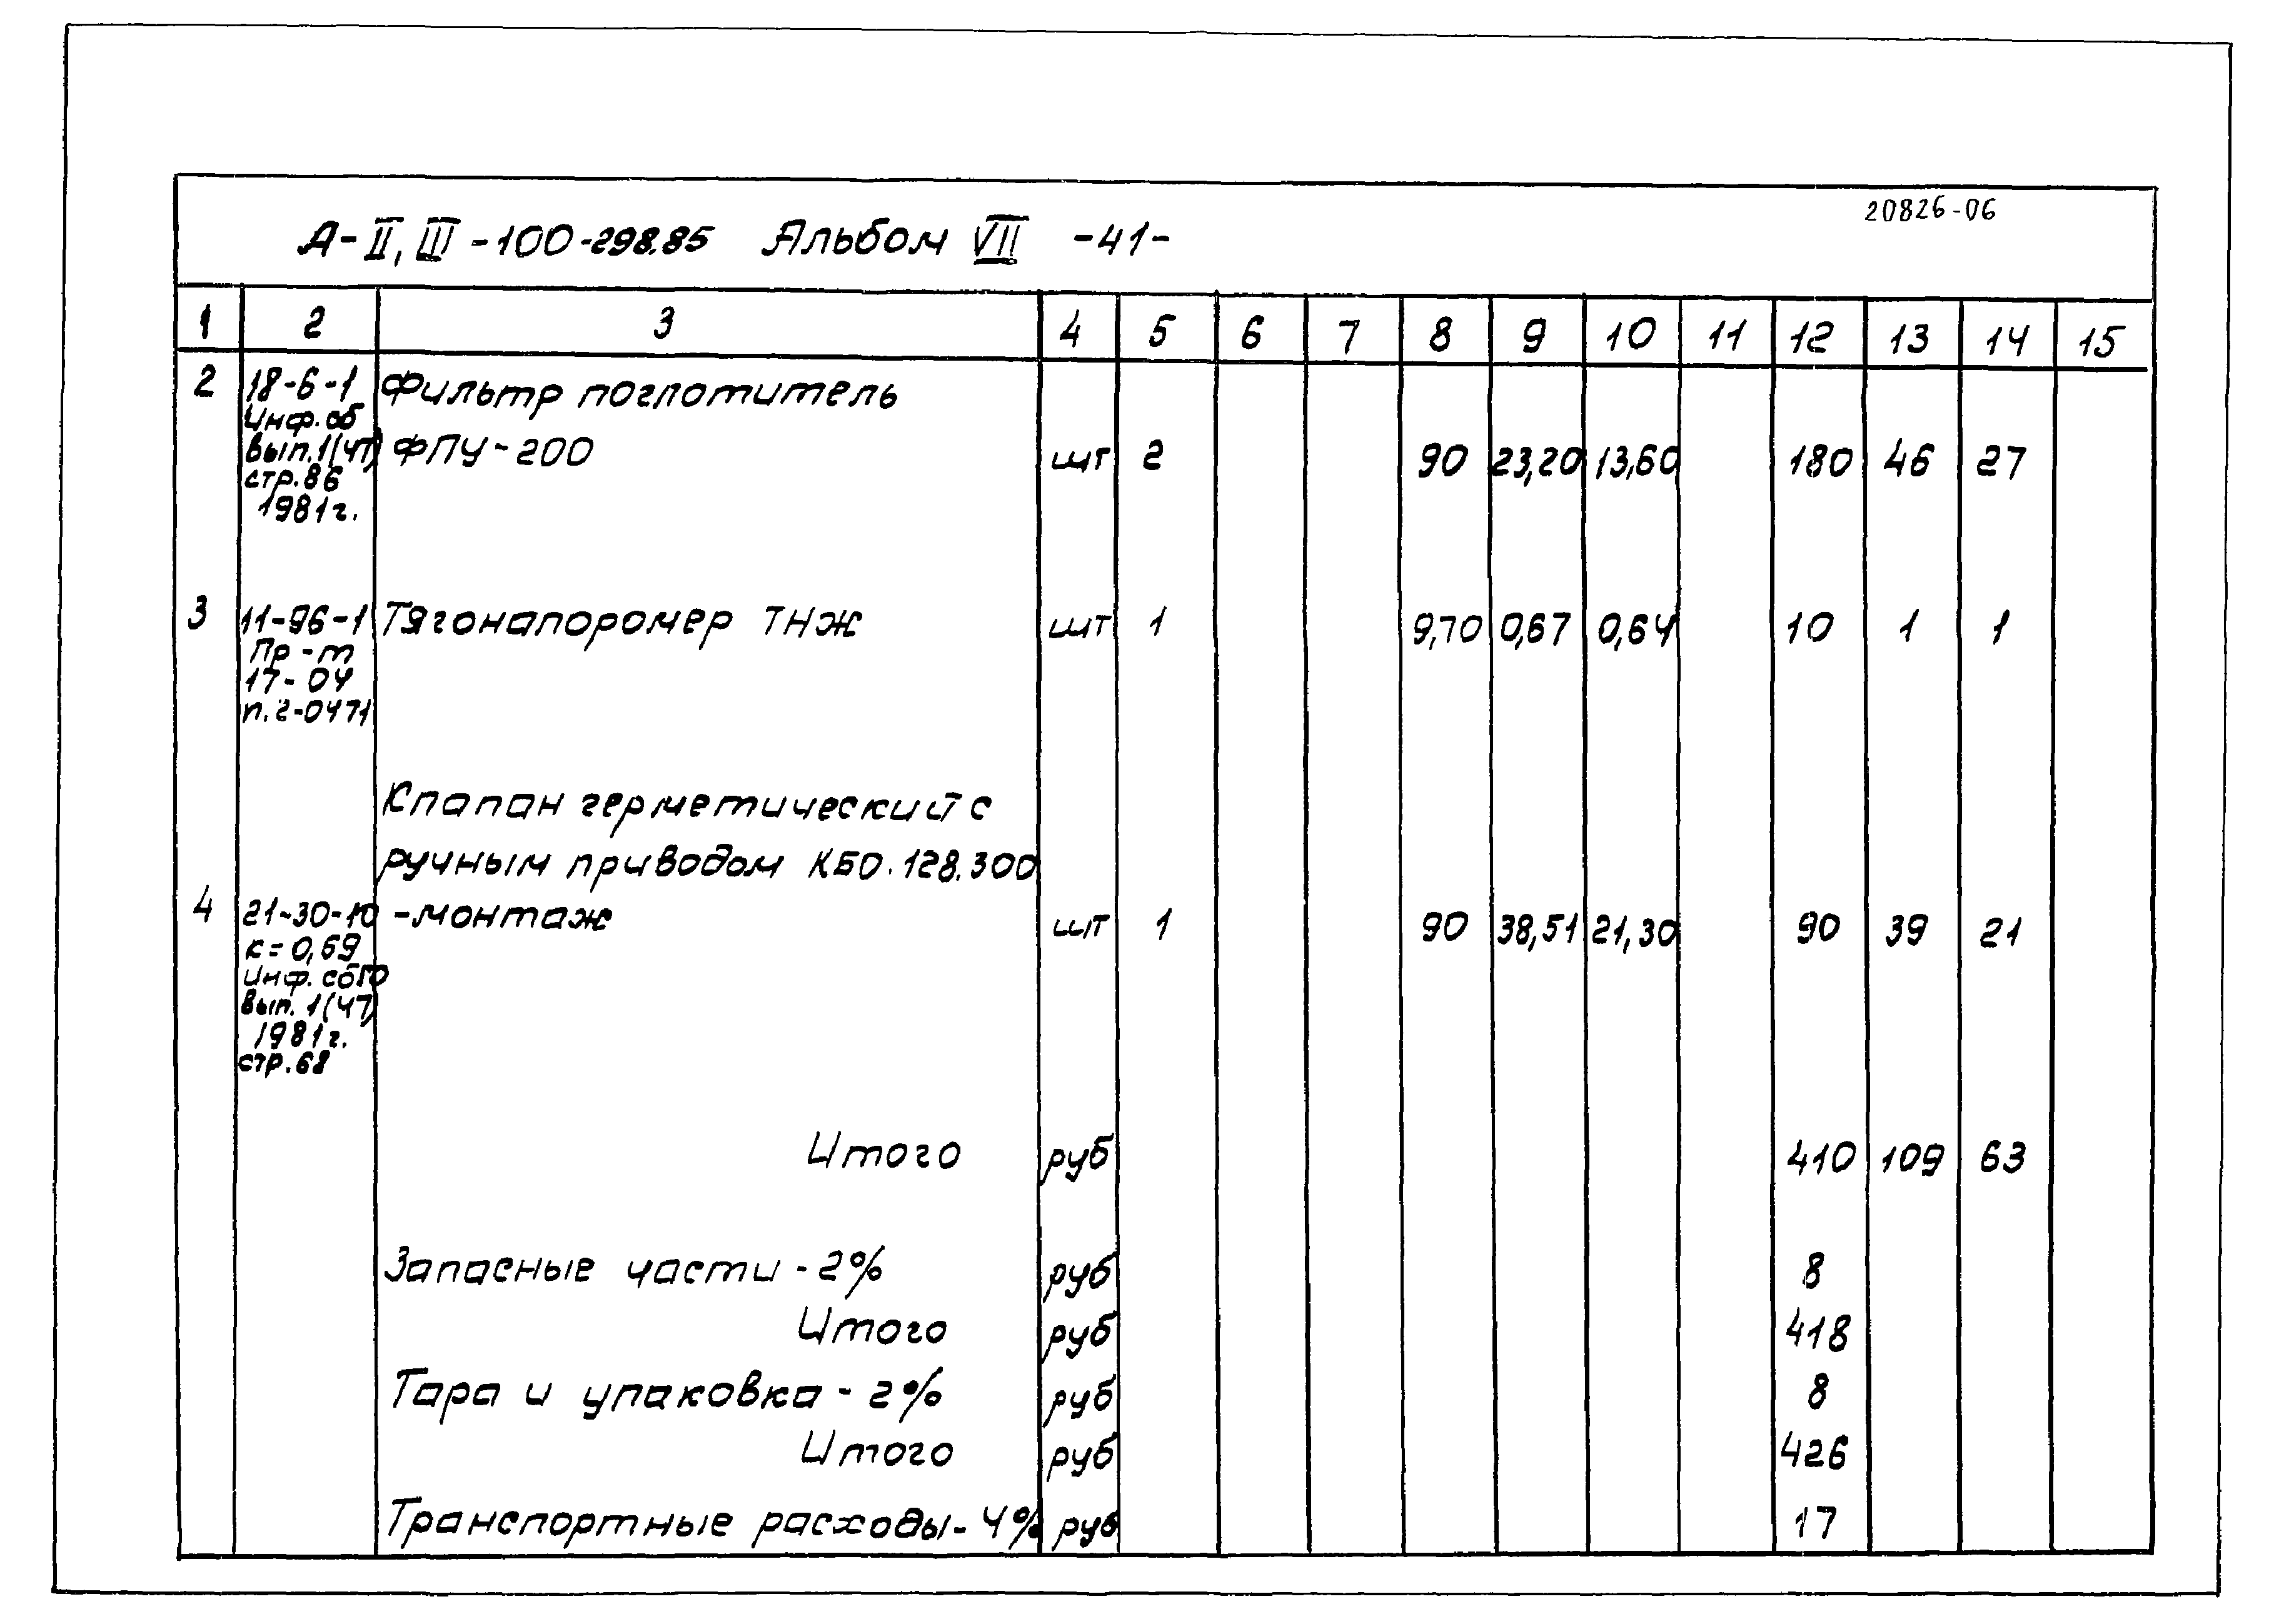 20826-06
А-II, III -100-298.85 Альбом VII -41-
1 2 3 4 5 6 7 8 9 10 11 12 13 14 15
2 18-6-1 Фильтр поглотитель
Инф. об
вып.1(47) ФПУ-200 шт 2 90 23,20 13,60 180 46 27
стр.86
1981г.
3 11-96-1 Тягонапоромер ТНЖ шт 1 9,70 0,67 0,64 10 1 1
Пр-т
17-04
п.2-0471
Клапан герметический с
ручным приводом КБО.128.300
4 21-30-10 -монтаж шт 1 90 38,51 21,30 90 39 21
к=0,69
Инф. сб
вып. 1(47)
1981г.
стр.68
Итого руб 410 109 63
Запасные части - 2% руб 8
Итого руб 418
Тара и упаковка - 2% руб 8
Итого руб 426
Транспортные расходы - 4% руб 17